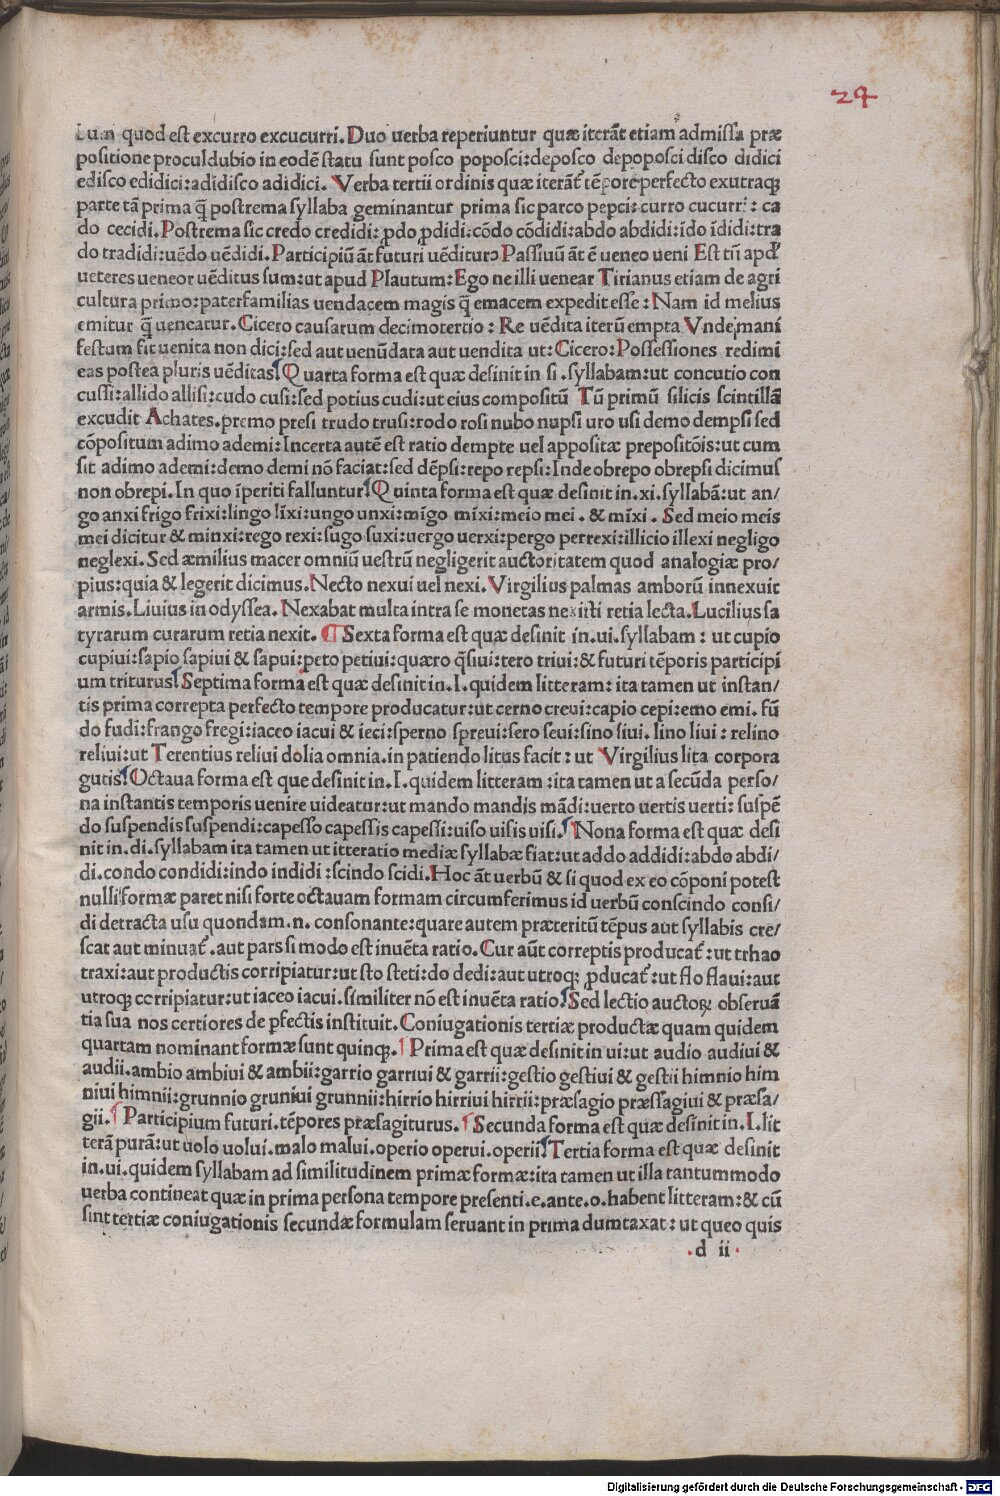 24
quod est excurro excucurri. Duo uerba reperiuntur quæ iterāt etiam admissa præ
positione proculdubio in eodē statu sunt posco poposci: deposco depoposci disco didici
edisco edidici: adidisco adidici. Verba tertii ordinis quæ iterāt̄ tēpore perfecto ex utraqꝫ
parte tā prima q̄ postrema syllaba geminantur prima sic parco peperci: curro cucurri: ca
do cecidi. Postrema sic credo credidi: ꝑdo ꝑdidi: cōdo cōdidi: abdo abdidi: īdo īdidi: tra
do tradidi: uēdo uēdidi. Participiū āt futuri uēditurꝰ Passiuū āt ē ueneo ueni Est tn̄ apd̕
ueteres ueneor uēditus sum: ut apud Plautum: Ego ne illi uenear Titianus etiam de agri
cultura primo: paterfamilias uendacem magis q̄ emacem expedit esse: Nam id melius
emitur q̄ ueneatur. Cicero causarum decimotertio: Re uēdita iterū empta Vnde mani
festum fit uenita non dici: sed aut uenūdata aut uendita ut: Cicero: Possessiones redimi
eas postea pluris uēditas. Quarta forma est quæ desinit in si. syllabam: ut concutio con
cussi: allido allisi: cudo cusi: sed potius cudi: ut eius compositū Tū primū silicis scintillā
excudit Achates. premo presi trudo trusi: rodo rosi nubo nupsi uro usi demo dempsi sed
cōpositum adimo ademi: Incerta autē est ratio dempte uel appositæ prepositōis: ut cum
sit adimo ademi: demo demi nō faciat: sed dēpsi: repo repsi: Inde obrepo obrepsi dicimus
non obrepi. In quo īperiti falluntur. Quinta forma est quæ desinit in. xi. syllabā: ut an/
go anxi frigo frixi: lingo līxi: ungo unxi: mīgo mīxi: meio mei. & mīxi. Sed meio meis
mei dicitur & minxi: rego rexi: sugo suxi: uergo uerxi: pergo perrexi: illicio illexi negligo
neglexi. Sed æmilius macer omniū uestrū negligerit auctoritatem quod analogiæ pro/
pius: quia & legerit dicimus. Necto nexui uel nexi. Virgilius palmas amborū innexuit
armis. Liuius in odyssea. Nexabat multa intra se monetas retia lecta. Lucilius sa
tyrarum curarum retia nexit. ¶ Sexta forma est quæ desinit in. ui. syllabam: ut cupio
cupiui: sapio sapiui & sapui: peto petiui: quæro q̄siui: tero triui: & futuri tēporis participi
um triturus. Septima forma est quæ desinit in. I. quidem litteram: ita tamen ut instan/
tis prima correpta perfecto tempore producatur: ut cerno creui: capio cepi: emo emi. fū
do fudi: frango fregi: iaceo iacui & ieci: sperno spreui: sero seui: sino siui. lino liui: relino
reliui: ut Terentius reliui dolia omnia. in patiendo litus facit: ut Virgilius lita corpora
gutis. Octaua forma est que desinit in. I. quidem litteram: ita tamen ut a secūda perso/
na instantis temporis uenire uideatur: ut mando mandis mādi: uerto uertis uerti: suspē
do suspendis suspendi: capesso capessis capessi: uiso uisis uisi. Nona forma est quæ desi
nit in. di. syllabam ita tamen ut itteratio mediæ syllabæ fiat: ut addo addidi: abdo abdi/
di. condo condidi: indo indidi: scindo scidi. Hoc āt uerbū & si quod ex eo cōponi potest
nulli formæ paret nisi forte octauam formam circumferimus id uerbū conscindo consi/
di detracta usu quondam. n. consonante: quare autem præteritū tēpus aut syllabis cre/
scat aut minuat̄. aut pars si modo est inuēta ratio. Cur aūt correptis producat̄: ut trhao
traxi: aut productis corripiatur: ut sto steti: do dedi: aut utroqꝫ ꝓducat̄: ut flo flaui: aut
utroqꝫ corripiatur: ut iaceo iacui. similiter nō est inuēta ratio. Sed lectio auctorꝝ obseruā
tia sua nos certiores de ꝑfectis instituit. Coniugationis tertiæ productæ quam quidem
quartam nominant formæ sunt quinqꝫ. ¶ Prima est quæ desinit in ui: ut audio audiui &
audii. ambio ambiui & ambii: garrio garriui & garrii: gestio gestiui & gestii himnio him
niui himnii: grunnio gruniui grunnii: hirrio hirriui hirrii: præsagio præssagiui & præsa/
gii. ¶ Participium futuri. tēpores præsagiturus. ¶ Secunda forma est quæ desinit in. I. lit
terā purā: ut uolo uolui. malo malui. operio operui. operii. Tertia forma est quæ desinit
in. ui. quidem syllabam ad similitudinem primæ formæ: ita tamen ut illa tantummodo
uerba contineat quæ in prima persona tempore presenti. e. ante. o. habent litteram: & cū
sint tertiæ coniugationis secundæ formulam seruant in prima dumtaxat: ut queo quis
.d ii.
Digitalisierung gefördert durch die Deutsche Forschungsgemeinschaft - DFG